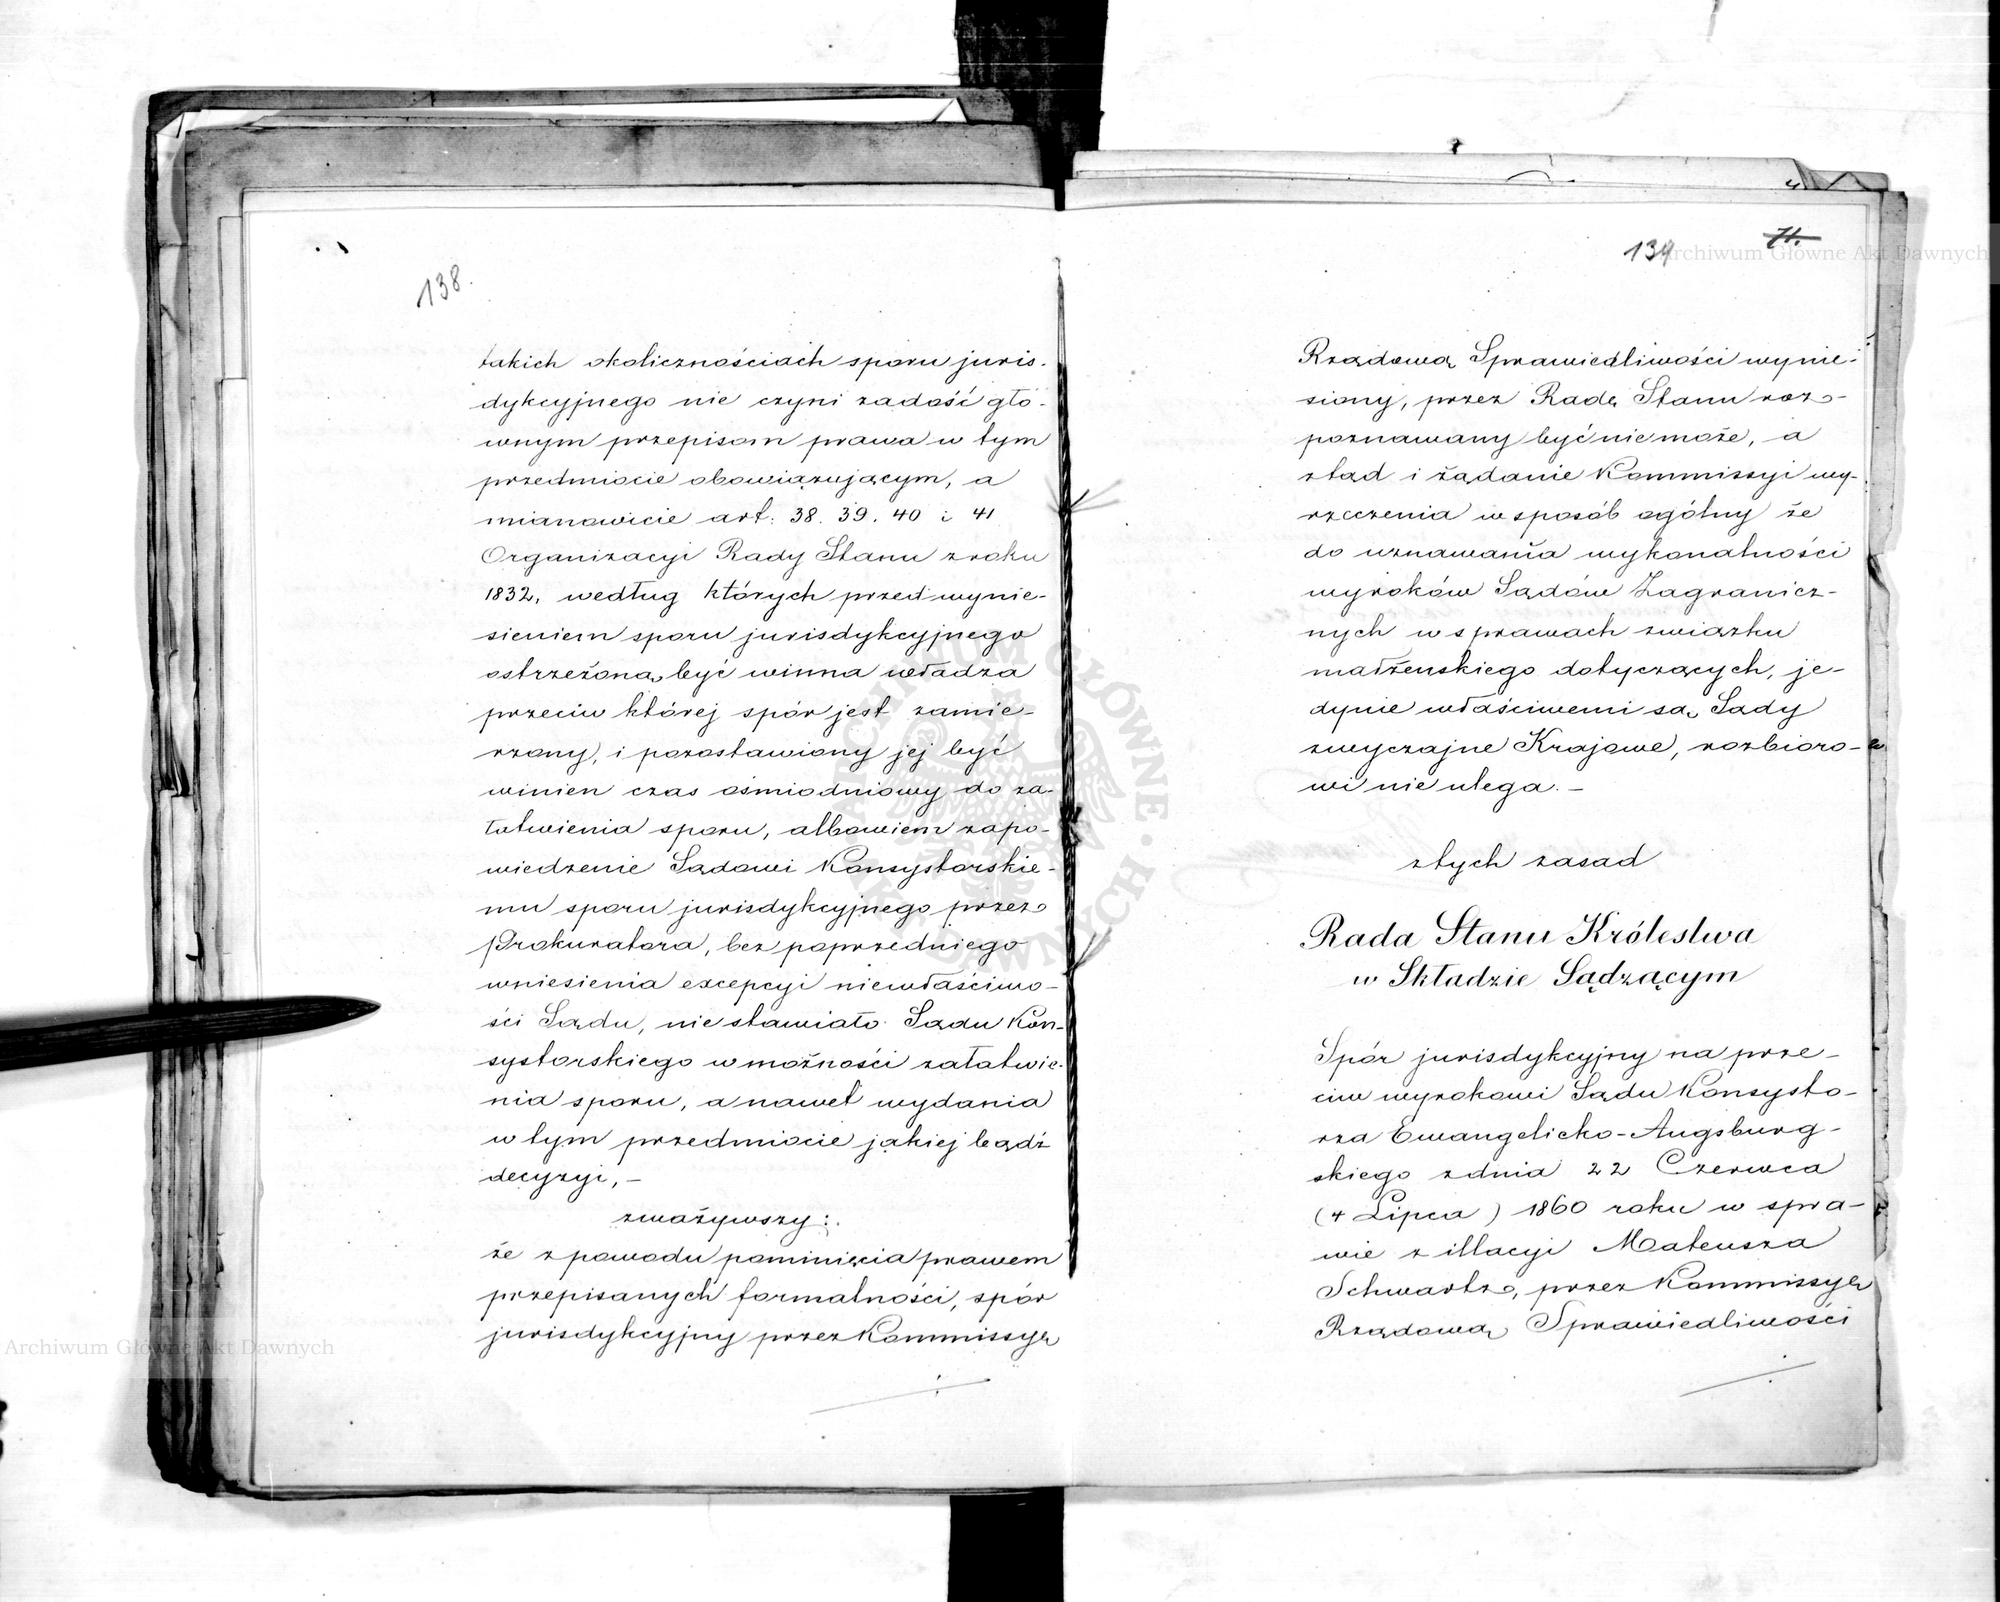 138.
takich okolicznościach sporu juris-
dykcyjnego nie czyni zadość głó-
wnym przepisom prawa w tym
przedmiocie obowiązującym, a
mianowicie art: 38. 39. 40 i 41
Organizacyi Rady Stanu z roku
1832, według których przed wynie-
sieniem sporu jurisdykcyjnego
ostrzeżoną być winna władza
przeciw której spór jest zamie-
rzony, i pozostawiony jej być
winien czas ośmiodniowy do za-
łatwienia sporu, albowiem zapo-
wiedzenie Sądowi Konsystorskie-
mu sporu jurisdykcyjnego przez
Prokuratora, bez poprzedniego
wniesienia excepcyi niewłaściwo-
ści Sądu, nie stawiało Sądu Kon-
systorskiego w możności załatwie-
nia sporu, a nawet wydania
w tym przedmiocie jakiej bądź
decyzyi, –
zważywszy:
że z powodu pominięcia prawem
przepisanych formalności, spór
jurisdykcyjny przez Kommissyę
139 71.
Rządową Sprawiedliwości wynie-
siony, przez Radę Stanu roz-
poznawany być nie może, a
ztąd i żądanie Kommissyi wy-
rzeczenia w sposób ogólny że
do uznawania wykonalności
wyroków Sądów Zagranicz-
nych w sprawach związku
małżeńskiego dotyczących, je-
dynie właściwemi są Sądy
zwyczajne Krajowe, rozbioro-
wi nie ulega. –
z tych zasad
Rada Stanu Królestwa
w Składzie Sądzącym
Spór jurisdykcyjny na prze-
ciw wyrokowi Sądu Konsysto-
rza Ewangelicko-Augsburg-
skiego z dnia 22 Czerwca
(4 Lipca) 1860 roku w spra-
wie z illacyi Mateusza
Schwartz, przez Kommissyę
Rządową Sprawiedliwości
Archiwum Główne Akt Dawnych
Archiwum Główne Akt Dawnych
ARCHIWUM GŁÓWNE AKT DAWNYCH